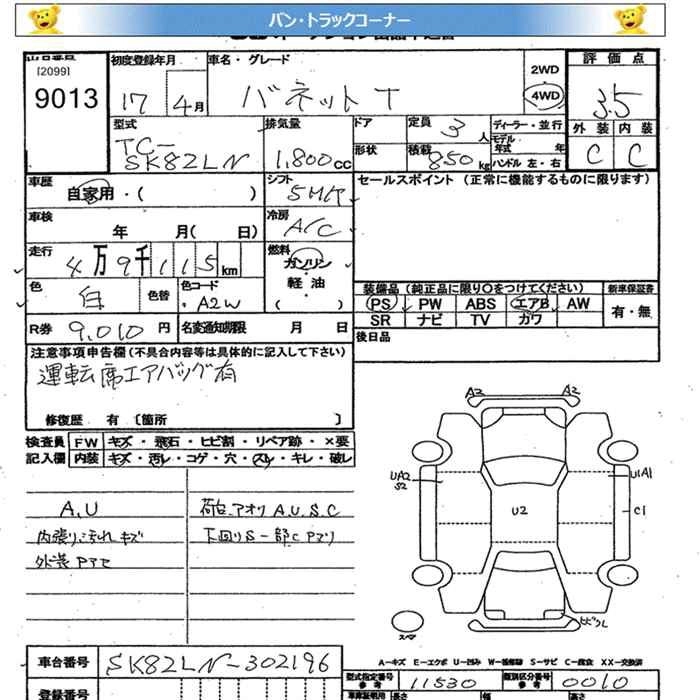 バン・トラックコーナー
[2099]
9013
初度登録年月
17 4月
車名・グレード
バネットT
2WD
4WD
評価点
3.5
外装 内装
C C
型式
TC-
SK82LN
排気量
1,800cc
ドア
形状
定員 3人
積載 850kg
ディーラー・並行
モデル年式 年
ハンドル 左・右
車歴
自家用・( )
シフト
5MT
セールスポイント (正常に機能するものに限ります)
車検
年 月( 日)
冷房
A/C
走行
4万9千115km
燃料
ガソリン
軽油
( )
色
白
色替
色コード
A2W
装備品 (純正品に限り○をつけてください)
新車保証書
PS PW ABS エアB AW
SR ナビ TV カワ
有・無
R券 9,010円
名変通知期限 月 日
後日品
注意事項申告欄(不具合内容等は具体的に記入して下さい)
運転席エアバッグ有
修復歴 有 〔箇所 〕
検査員
記入欄
FW キズ・飛石・ヒビ割・リペア跡・×要
内装 キズ・汚レ・コゲ・穴・スレ・キレ・破レ
A,U
内張り汚れキズ
荷台アオリ A.U.S.C
下回りS一部C
A2 A2
UA2
S2
U2
U1A1
C1
スペア
A-キズ E-エクボ U-凹ミ S-サビ C-腐食 XX-交換済
車台番号 SK82LN-302196
登録番号
型式指定番号 11530
類別区分番号 0010
長さ 幅 高さ